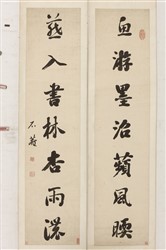 魚游墨沼蘋風暖
燕入書林杏雨濃